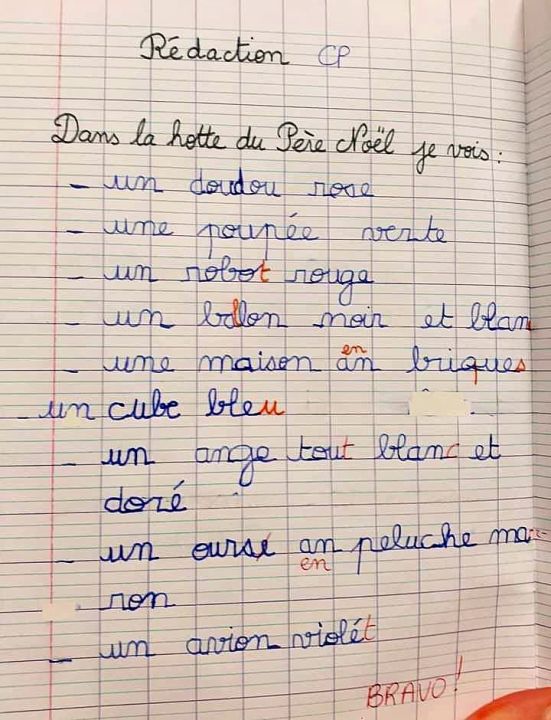 Rédaction CP
Dans la hotte du Père Noël je vois :
- un doudou rose
- une poupée verte
- un robot rouge
- un ballon noir et blan
- une maison an briques
en
- un cube bleu
- un ange tout blanc et
doré
- un ourse an peluche mar-
en
ron
- un avion violét
BRAVO !